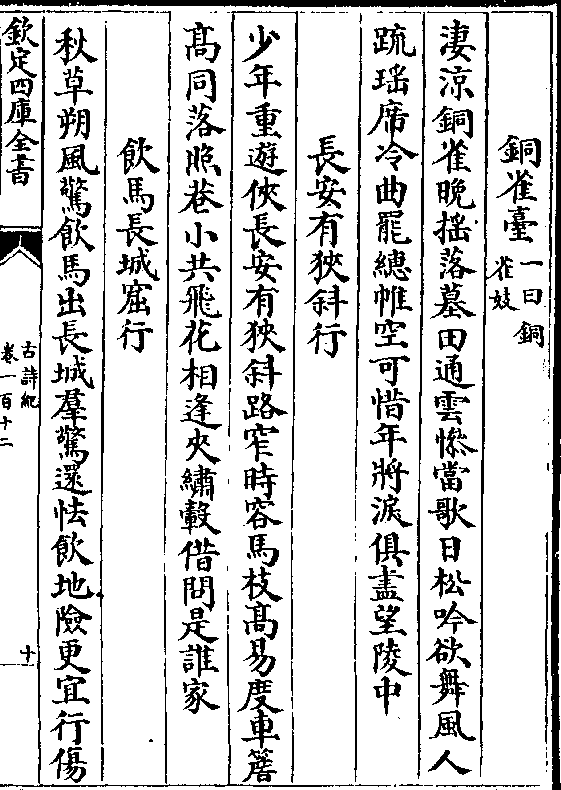 銅雀臺一曰銅雀妓
淒涼銅雀晚揺落墓田通雲慘當歌日松吟欲舞風人
疏瑶席冷曲罷繐帷空可惜年將淚俱盡望陵中
長安有狹斜行
少年重遊俠長安有狹斜路窄時容馬枝髙易度車簷
髙同落照巷小共飛花相逢夾繡轂借問是誰家
飲馬長城窟行
秋草朔風驚飲馬出長城羣驚還怯飲地險更宜行傷
欽定四庫全書
古詩紀
卷一百十二
十